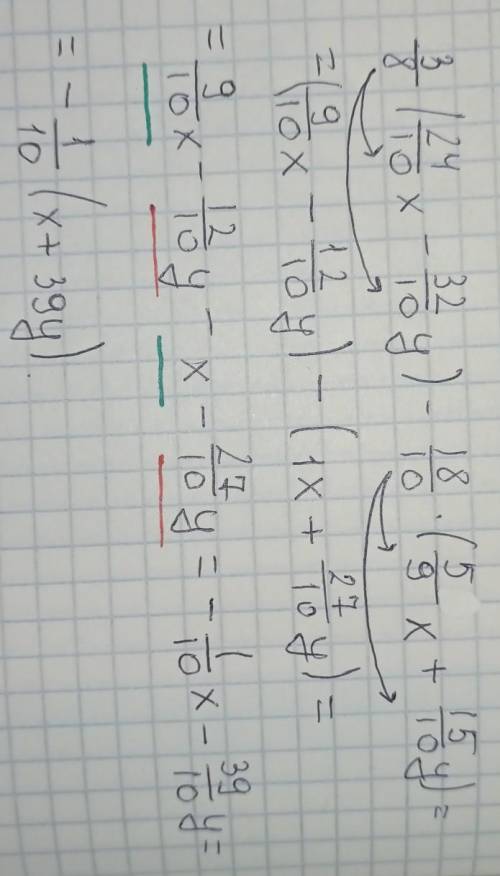 3/8 (24/10 x - 32/10 y) - 18/10 · (5/9 x + 15/10 y) =
= (9/10 x - 12/10 y) - (1x + 27/10 y) =
= 9/10 x - 12/10 y - x - 27/10 y = - 1/10 x - 39/10 y =
= - 1/10 (x + 39y).